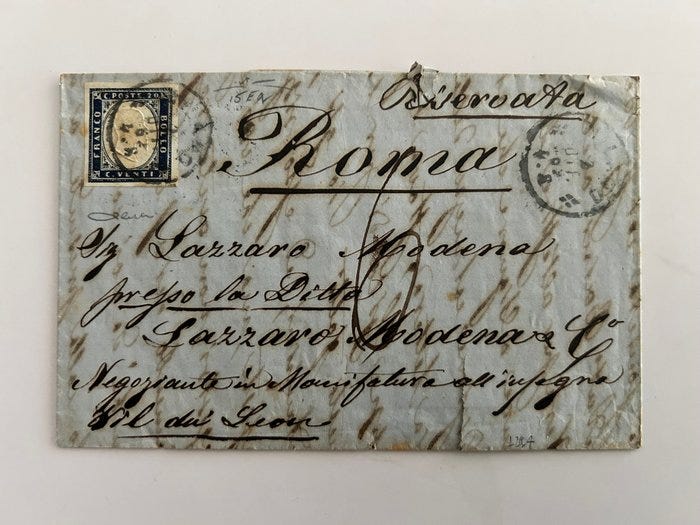 C. POSTE 20
FRANCO
BOLLO
C. VENTI
15EA
Riservata
Roma
6
Sig Lazzaro Modena
presso la Ditta
Lazzaro Modena & Co
Negoziante in Manifatura all'insegna
Vil da Leon